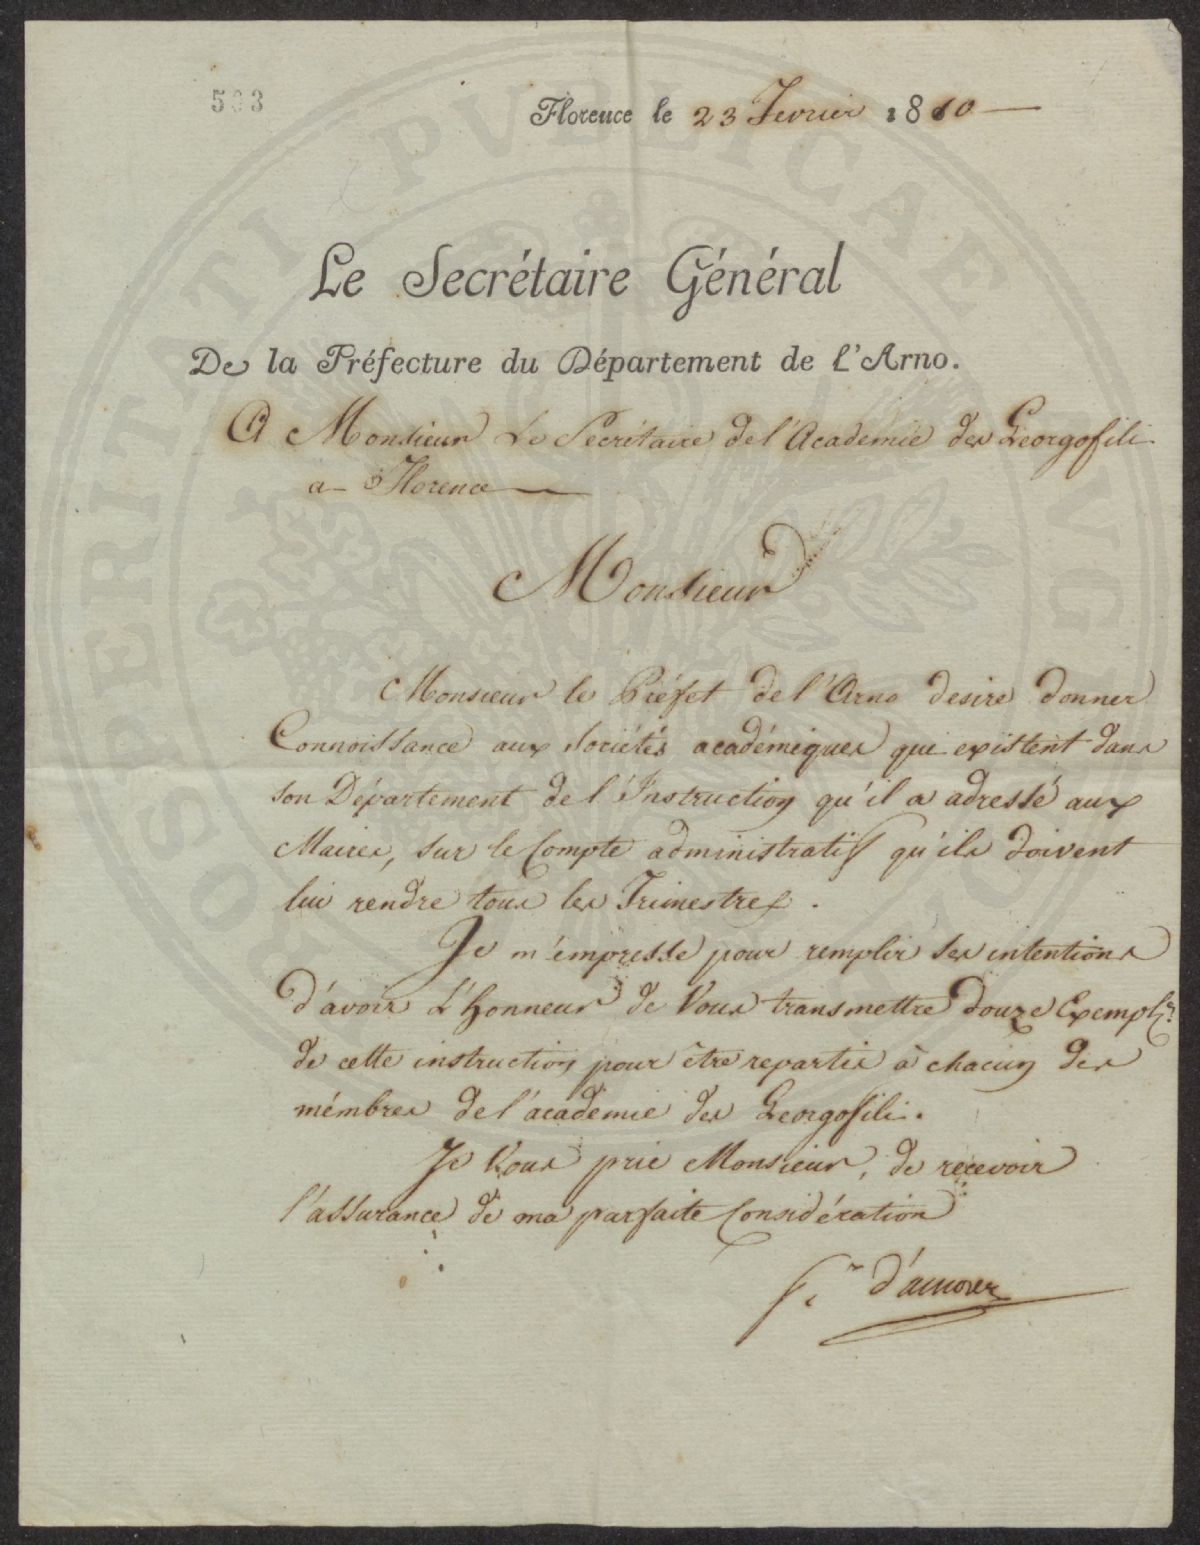 503
Florence le 23 Fevrier 1810
Le Secrétaire Général
De la Préfecture du Département de l'Arno.
A Monsieur Le Secrétaire de l'Academie des Georgofili
a Florence
Monsieur
Monsieur le Préfet de l'Arno desire donner
Connoissance aux sociétés académiques qui existent dans
son Département de l'Instruction qu'il a adressé aux
Maires, sur le Compte administratif qu'ils doivent
lui rendre tous les Trimestres.
Je m'empresse pour remplir ses intentions
d'avoir l'honneur de Vous transmettre douze Exempl.res
de cette instruction pour être repartis à chacun des
mémbres de l'académie des Georgofili.
Je Vous prie Monsieur, de recevoir
l'assurance de ma parfaite Considération
PROSPERITATI PUBLICAE